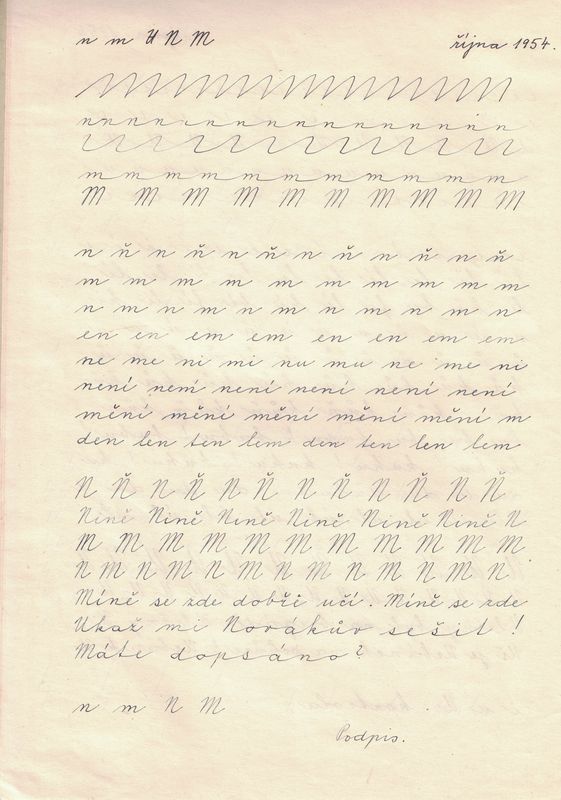 n m U N M října 1954.
n n n n n n n n n n n n n n n n
m m m m m m m m m m m
M M M M M M M M M M
n ň n ň n ň n ň n ň n ň
m m m m m m m m m m
n m n m n m n m n m n
en en em em en en em em
ne me ni mi nu mu ne me ni
není není není není není není
mění mění mění mění mění m
den len ten lem den ten len lem
N Ň N Ň N Ň N Ň N Ň N Ň
Nině Nině Nině Nině Nině Nině N
M M M M M M M M M M M
N M N M N M N M N M N M N
Míně se zde dobře učí. Míně se zde
Ukaž mi Novákův sešit!
Máte dopsáno?
n m N M
Podpis.